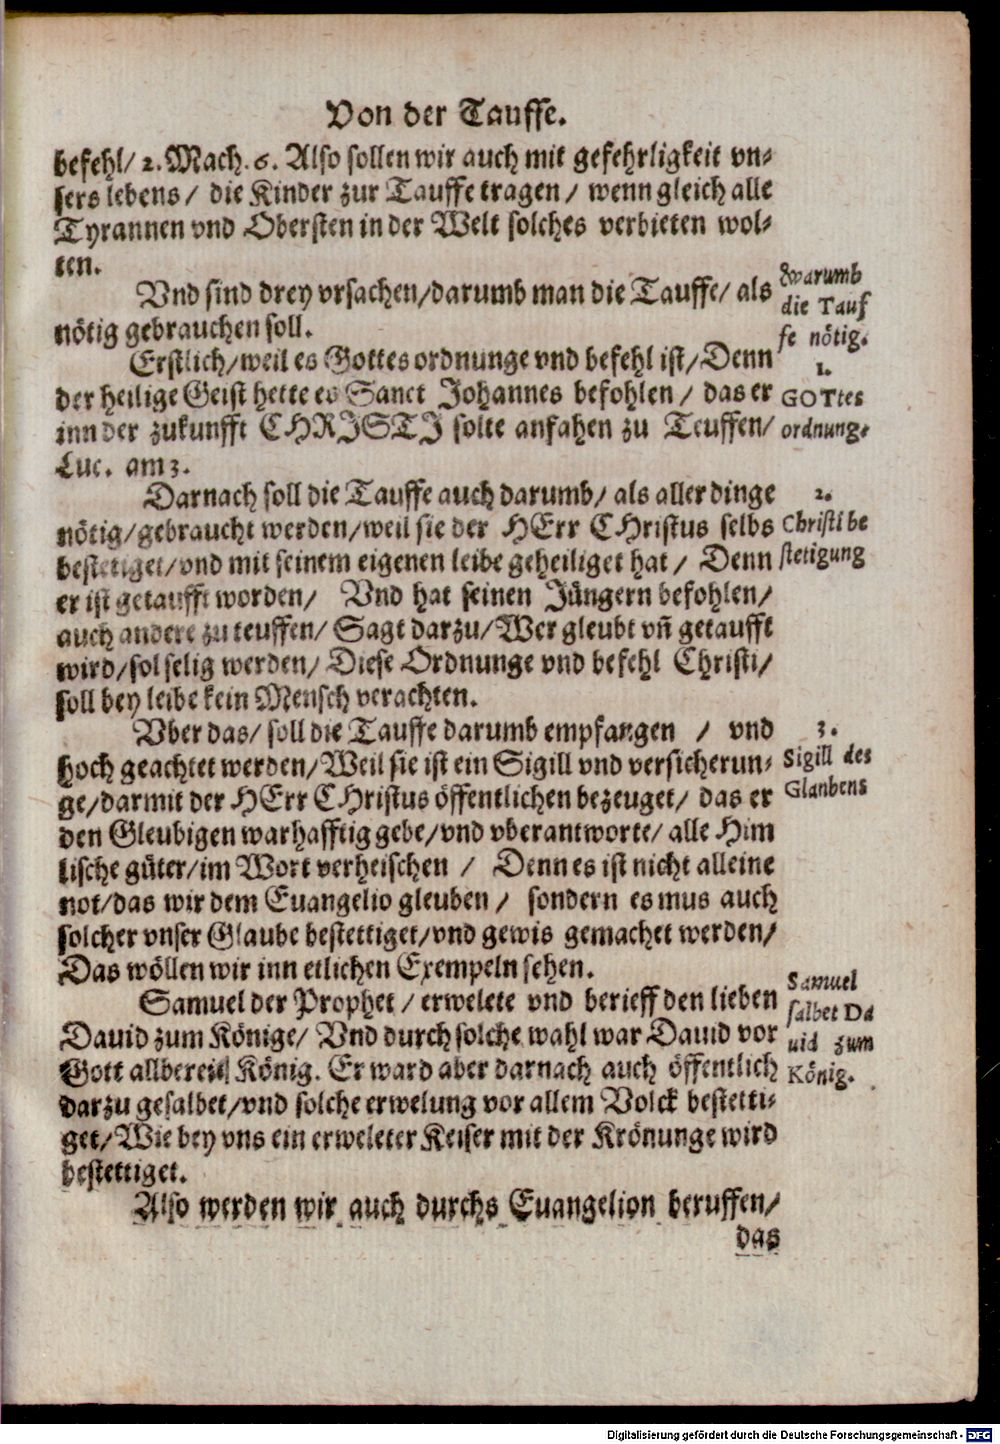 Von der Tauffe.
befehl/ 2. Mach. 6. Also sollen wir auch mit gefehrligkeit vn-
sers lebens/ die Kinder zur Tauffe tragen/ wenn gleich alle
Tyrannen vnd Obersten in der Welt solches verbieten wol-
ten.
Vnd sind drey vrsachen/darumb man die Tauffe/ als
nötig gebrauchen soll.
Warumb
die Tauf
fe nötig.
Erstlich/weil es Gottes ordnunge vnd befehl ist/Denn
der heilige Geist hette es Sanct Johannes befohlen/ das er
inn der zukunfft CHRJSTJ solte anfahen zu Teuffen/
Luc. am 3.
1.
GOTtes
ordnung.
Darnach soll die Tauffe auch darumb/ als aller dinge
nötig/gebraucht werden/weil sie der HErr CHristus selbs
bestetiget/vnd mit seinem eigenen leibe geheiliget hat/ Denn
er ist getaufft worden/ Vnd hat seinen Jüngern befohlen/
auch andere zu teuffen/ Sagt darzu/Wer gleubt vñ getaufft
wird/sol selig werden/ Diese Ordnunge vnd befehl Christi/
soll bey leibe kein Mensch verachten.
2.
Christi be
stetigung
Vber das/ soll die Tauffe darumb empfangen / vnd
hoch geachtet werden/Weil sie ist ein Sigill vnd versicherun-
ge/darmit der HErr CHristus öffentlichen bezeuget/ das er
den Gleubigen warhafftig gebe/vnd vberantworte/ alle Him
lische güter/im Wort verheischen / Denn es ist nicht alleine
not/das wir dem Euangelio gleuben/ sondern es mus auch
solcher vnser Glaube bestettiget/vnd gewis gemachet werden/
Das wöllen wir inn etlichen Exempeln sehen.
3.
Sigill des
Glaubens
Samuel der Prophet/ erwelete vnd berieff den lieben
Dauid zum Könige/ Vnd durch solche wahl war Dauid vor
Gott allbereit König. Er ward aber darnach auch öffentlich
darzu gesalbet/vnd solche erwelung vor allem Volck bestetti-
get/Wie bey vns ein erweleter Keiser mit der Krönunge wird
bestettiget.
Samuel
salbet Da
uid zum
König.
Also werden wir auch durchs Euangelion beruffen/
das
Digitalisierung gefördert durch die Deutsche Forschungsgemeinschaft - DFG